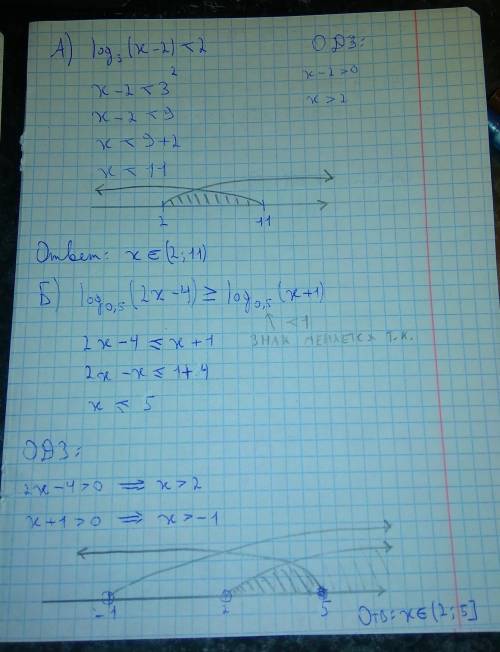 А) log₃(x-2)<2 ОДЗ:
x-2<3² x-2>0
x-2<9 x>2
x<9+2
x<11
2 11
Ответ: x∈(2;11)
Б) log₀,₅(2x-4)≥log₀,₅(x+1)
<1
2x-4≤x+1 знак меняется т.к.
2x-x≤1+4
x≤5
ОДЗ:
2x-4>0 ⟹ x>2
x+1>0 ⟹ x>-1
-1 2 5
Отв: x∈(2;5]